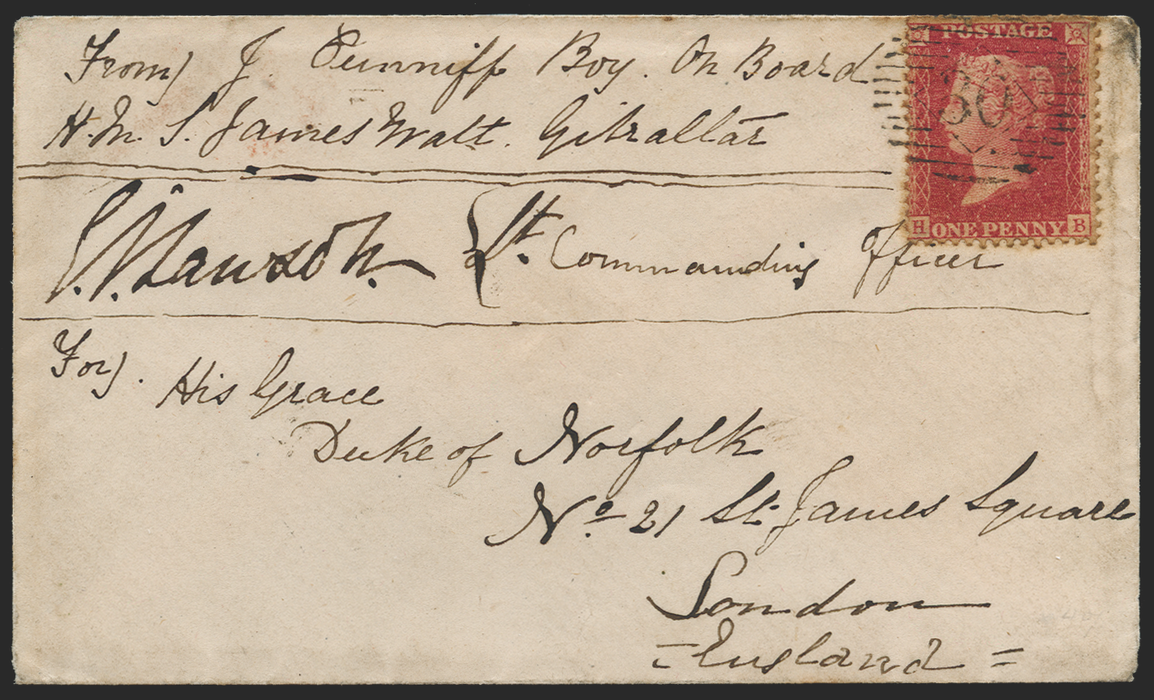 From J. Cunniff Boy. On Board
H. M. S. James Watt. Gibraltar
Lt. Commanding Officer
For. His Grace
Duke of Norfolk
No 21 St. James Square
London
England
POSTAGE
H ONE PENNY B